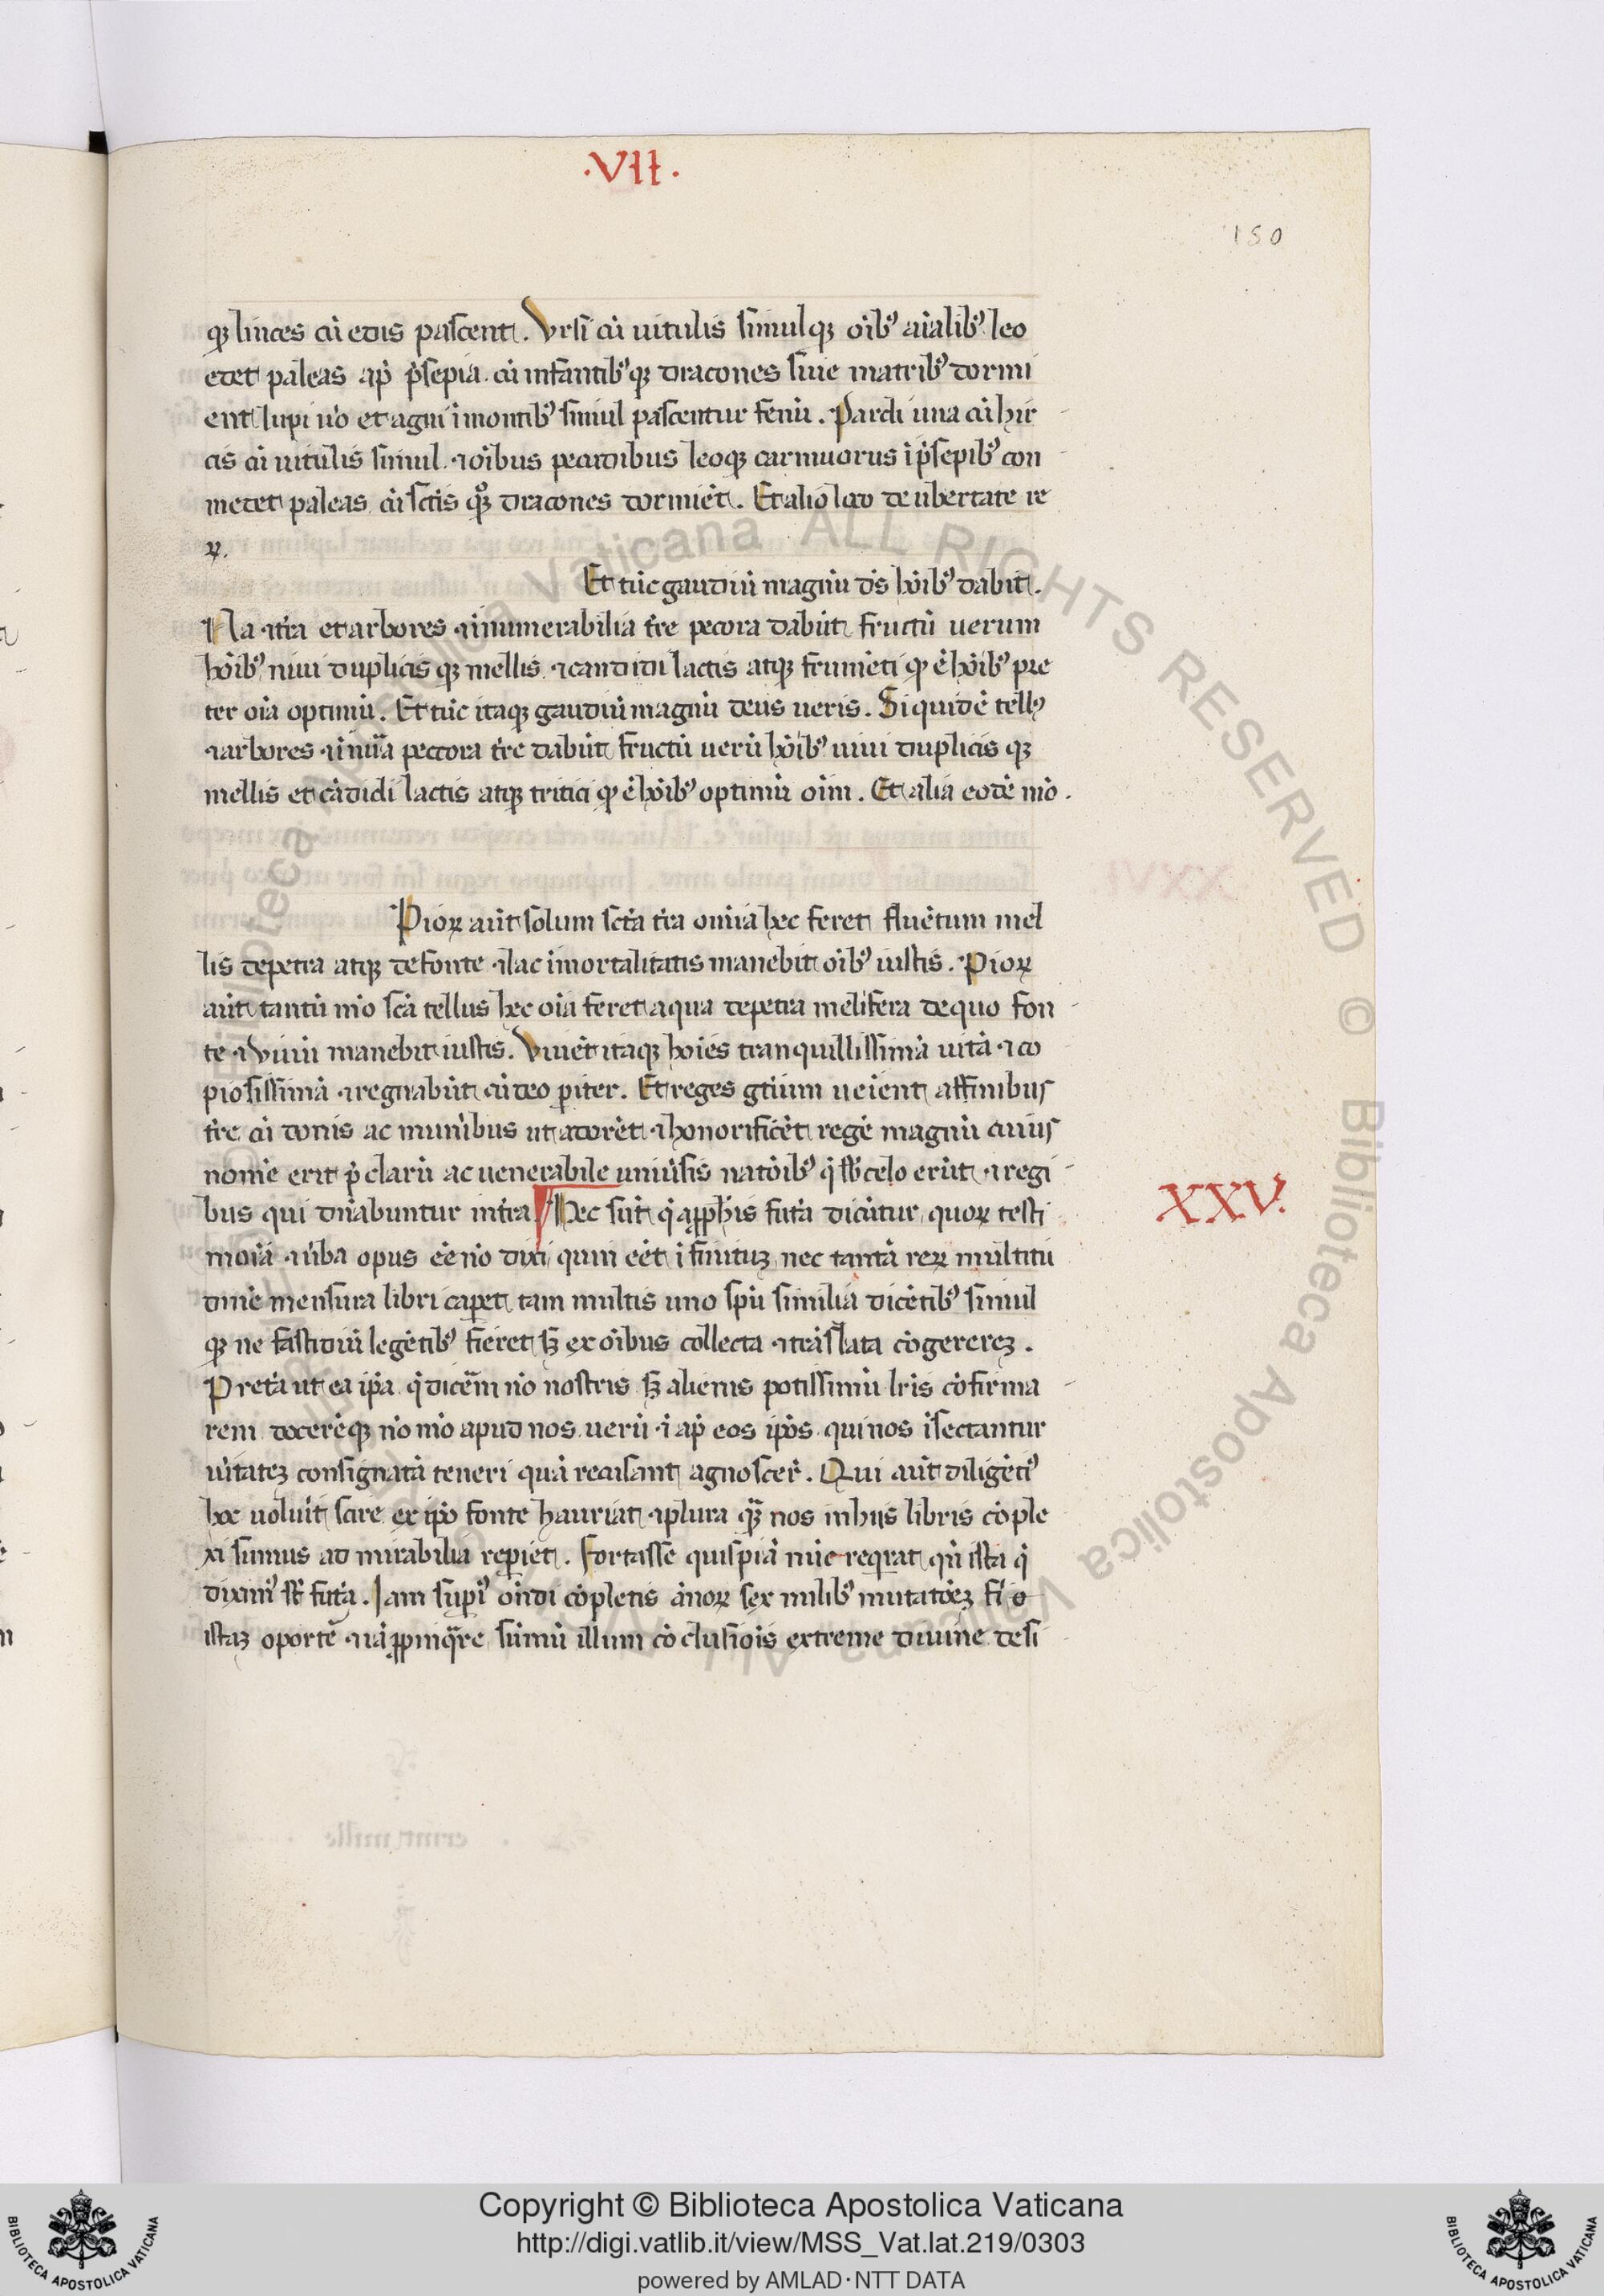 ·VII·
150
qȝ linces cū edis pascent. Vrsi cū uitulis simulqȝ oībꝰ aīalibꝰ leo
edet paleas ap̄ p̄sepia. cū infantibꝰqȝ dracones siue matribꝰ dormi
ent lupi u̾o et agni ī montibꝰ simul pascentur fenū. Pardi una cū hir
cis cū uitulis simul ⁊ oībus pecudibus leoqȝ carniuorus ī p̄sepibꝰ con
medet paleas cū sctīs qȝ dracones dormiēt. Et alio loco de ubertate re
ꝝ.
Et tūc gaudiū magnū dēs hōibꝰ dabit.
Nā ⁊ tr̄a et arbores ⁊ īnumerabilia tr̄e pecora dabūt fructū uerum
hōibꝰ uini duplicis qȝ mellis ⁊ candidi lactis atqȝ frumēti qȝ ē hōibꝰ pre
ter oīa optimū. Et tūc itaqȝ gaudiū magnū deus ueris. Siquidē tellꝰ
⁊ arbores ⁊ īnūa peccora tr̄e dabūt fructū uerū hōibꝰ uini duplicis qȝ
mellis et cādidi lactis atqȝ tritici qȝ ē hōibꝰ optimū oīm. Et alia eodē mō.
Pioꝝ aūt solum sctā tr̄a omīa hec feret fluētum mel
lis de petra atqȝ de fonte ⁊ lac īmortalitatis manebit oībꝰ iustis. Pioꝝ
aūt tantū mō scā tellus hec oīa feret aqua de petra melifera de quo fon
te ⁊ Vinū manebit iustis. Viuēt itaqȝ hoīes tranquillissimā uitā ⁊ co
piosissimā ⁊ regnabūt cū deo pīter. Et reges gtīum ueīent a finibus
tr̄e cū donis ac munībus ut adorēt ⁊ honorificēt regē magnū cuius
nomē erit p̄clarū ac uenerabile uniūsis natōibꝰ q̄ sb̄ celo erūt ⁊ regi
bus qui dn̄abuntur in tr̄a. Hec sūt q̄ a ꝓphīs futā dicūtur quoꝝ testi
moīa ⁊ ūba opus eē nō dixi quni eēt īfinituȝ nec tantā reꝝ multitu
dinē mensura libri caꝑet tam multis uno spū similia dicētibꝰ simul
qȝ ne fastidiū legētibꝰ fieret sȝ ex oībus collecta ⁊ trāslata cōgerereȝ.
Pretā ut ea ip̄a q̄ dicēm nō nostris sȝ alienis potissimū lr̄is cōfirma
rem docerēqȝ nō mō apud nos uerū ⁊ ap̄ eos ip̄os qui nos īsectantur
ūitateȝ consignatā teneri quā recusant agnoscer̄. Qui aūt diligētiꝰ
hoc uolūit scire ex ip̄o fonte hauriat ⁊ plura qȝ nos in hiis libris cōple
xi sumus admirabilia reꝑiet. Fortasse quispiā nūc reqrat qn̄ ista q̄
diximꝰ st̄ futā. Iam supīꝰ on̄di cōpletis ānoꝝ sex milibꝰ mutatōeȝ fīo
istaȝ oportē ⁊ iā ꝓpinqȝre sūmū illum cōclusiōis extreme diuine desi
XXV.
Copyright © Biblioteca Apostolica Vaticana
http://digi.vatlib.it/view/MSS_Vat.lat.219/0303
powered by AMLAD·NTT DATA